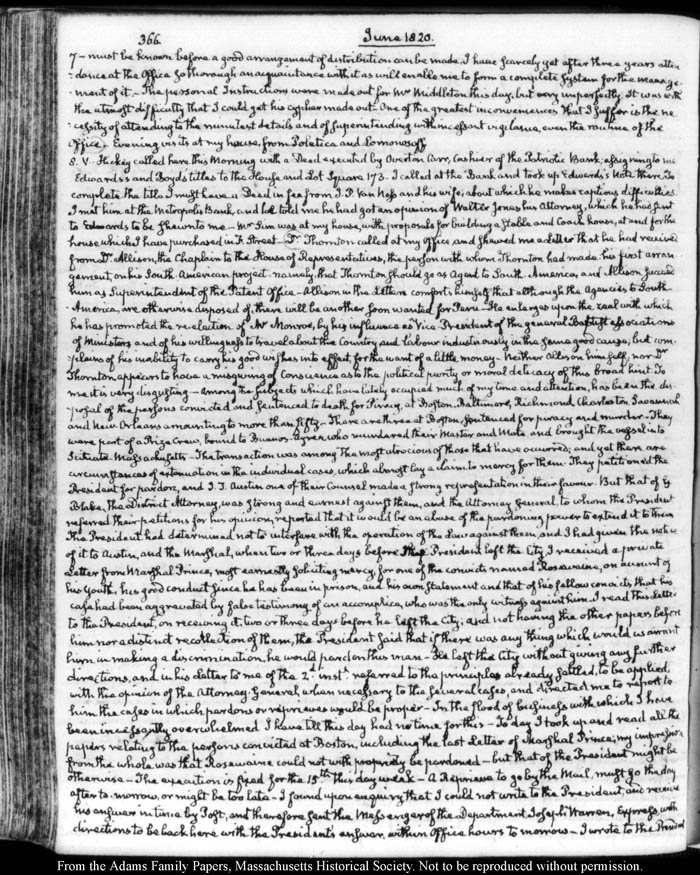 366.
June 1820.
7 - must be known before a good arrangement of distribution can be made. I have scarcely yet after three years atten
-dance at the Office so thorough an acquaintance with it as will enable me to form a complete System for the manage-
-ment of it. - The personal Instructions were made out for Mr Middleton this day, but very imperfectly. It was with
the utmost difficulty that I could get his cypher made out. One of the greatest inconveniences that I suffer is the ne
-cessity of attending to the minutest details and of superintending with incessant vigilance, even the routine of the
Office. Evening visits at my house, from Poletica and Lomonosoff.
8. V. Hickey called here this Morning with a Deed executed by Overton Carr, Cashier of the Patriotic Bank, assigning to me
Edwards's and Boyd's titles to the House and Lot Square 173. I called at the Bank and took up Edwards's Note there. To
complete the title I must have a Deed in fee from J. P. Van Ness and his wife; about which he makes captious difficulties.
I met him at the Metropolis Bank, and he told me he had got an opinion of Walter Jones his Attorney, which he has sent
to Edwards to be shewn to me - Mr Sim was at my house, with proposals for building a Stable and Coach house, at and for the
house, which I have purchased in F Street - Dr Thornton called at my Office and shewed me a Letter that he had received
from Dr Allison, the Chaplain to the House of Representatives, the person with whom Thornton had made his first arran-
gement, on his South American project - namely, that Thornton should go as Agent to South America, and Allison succeed
him as Superintendent of the Patent Office - Allison in the Letter comforts himself that although the Agencies to South-
-America, are otherwise disposed of, there will be another soon wanted for Peru - He enlarges upon the zeal with which
he has promoted the re-election of Mr Monroe, by his influence as Vice President of the general Baptist associations
of Ministers and of his willingness to travel about the Country and labour industriously in the same good cause; but com-
-plains of his inability to carry his good wishes into effect, for the want of a little money - Neither Allison himself, nor Dr
Thornton appears to have a misgiving of conscience as to the political purity or moral delicacy of this broad hint. To
me it is very disgusting - Among the subjects which have lately occupied much of my time and attention, has been the dis
-posal of the persons convicted and sentenced to death for Piracy, at Boston, Baltimore, Richmond, Charleston Savannah
and New Orleans amounting to more than fifty - There are three at Boston, sentenced for piracy and murder - They
were part of a Prize Crew, bound to Buenos-Ayres, who murdered their Master and Mate and brought the vessel into
Scituate Massachusetts - The transaction was among the most atrocious of those that have occurred; and yet there are
circumstances of extenuation in the individual cases, which almost lay a claim to mercy for them. They petitioned the
President for pardon, and J. T. Austin one of their Counsel made a strong representation in their favour. But that of G
Blake, the District Attorney, was strong and earnest against them, and the Attorney General, to whom the President
referred their petitions for his opinion, reported that it would be an abuse of the pardoning power to extend it to them
The President had determined not to interfere with the operation of the Law against them, and I had given the notice
of it to Austin, and the Marshal, when two or three days before the President left the City I received a private
Letter from Marshal Prince, most earnestly soliciting mercy, for one of the convicts named Rosewaine, on account of
his Youth, his good conduct since he has been in prison, and his own Statement and that of his fellow convicts, that his
case had been aggravated by false testimony of an accomplice, who was the only witness against him. I read this Letter
to the President, on receiving it, two or three days before he left the City; and not having the other papers before
him nor a distinct recollection of them, the President said that if there was any thing which would warrant
him in making a discrimination, he would pardon this man - He left the City without giving any further
directions, and in his letter to me of the 2d inst. referred to the principles already settled, to be applied,
with the opinion of the Attorney General, when necessary to the several cases, and directed me to report to
him the cases in which pardons or reprieves would be proper - In the flood of business with which I have
been incessantly overwhelmed I have till this day had no time for this - To day I took up and read all the
papers relating to the persons convicted at Boston, including the last Letter of Marshal Prince; my impression
from the whole was that Rosewaine could not with propriety be pardoned - but that of the President might be
otherwise - The execution is fixed for the 15th this day week - A Reprieve to go by the Mail, must go the day
after to-morrow, or might be too late - I found upon enquiry that I could not write to the President, and receive
his answer in time by Post, and therefore sent the Messenger of the Department Joseph Warren, Express with
directions to be back here with the President's answer, within Office hours to morrow - I wrote to the President
From the Adams Family Papers, Massachusetts Historical Society. Not to be reproduced without permission.